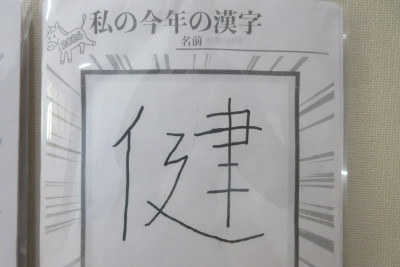 私の今年の漢字
名前
健